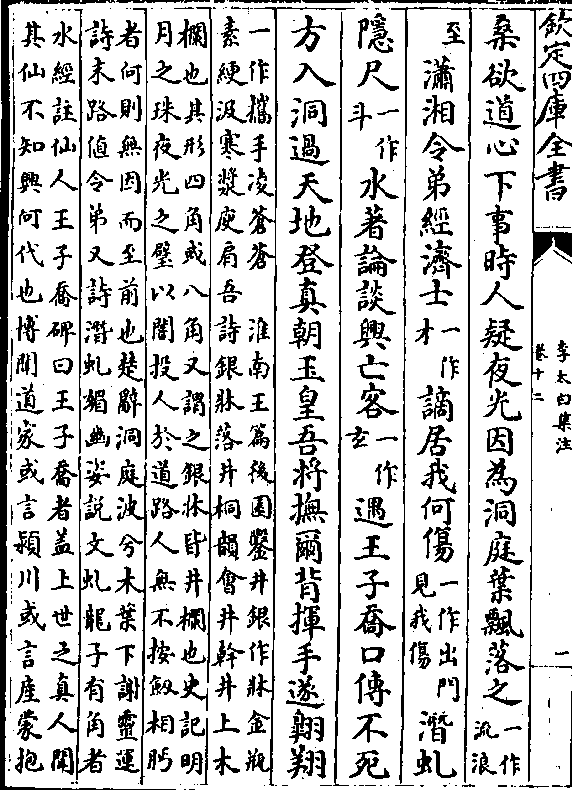 欽定四庫全書
李太白集注
卷十二
一
桑欲道心下事時人疑夜光因為洞庭葉飄落之一作流浪
至瀟湘令弟經濟士一作才謫居我何傷一作出門見我傷潛虬
隱尺一作斗水著論談興亡客一作玄遇王子喬口傳不死
方入洞過天地登真朝玉皇吾將撫爾背揮手遂翺翔
一作攜手凌蒼蒼　淮南王篇後園鑿井銀作牀金瓶
素綆汲寒漿庾肩吾詩銀牀落井桐韻會井幹井上木
欄也其形四角或八角又謂之銀牀皆井欄也史記明
月之珠夜光之璧以闇投人於道路人無不按劔相眄
者何則無因而至前也楚辭洞庭波兮木葉下謝靈運
詩末路值令弟又詩潛虬媚幽姿説文虬龍子有角者
水經註仙人王子喬碑曰王子喬者盖上世之真人聞
其仙不知興何代也博聞道家或言潁川或言産蒙抱